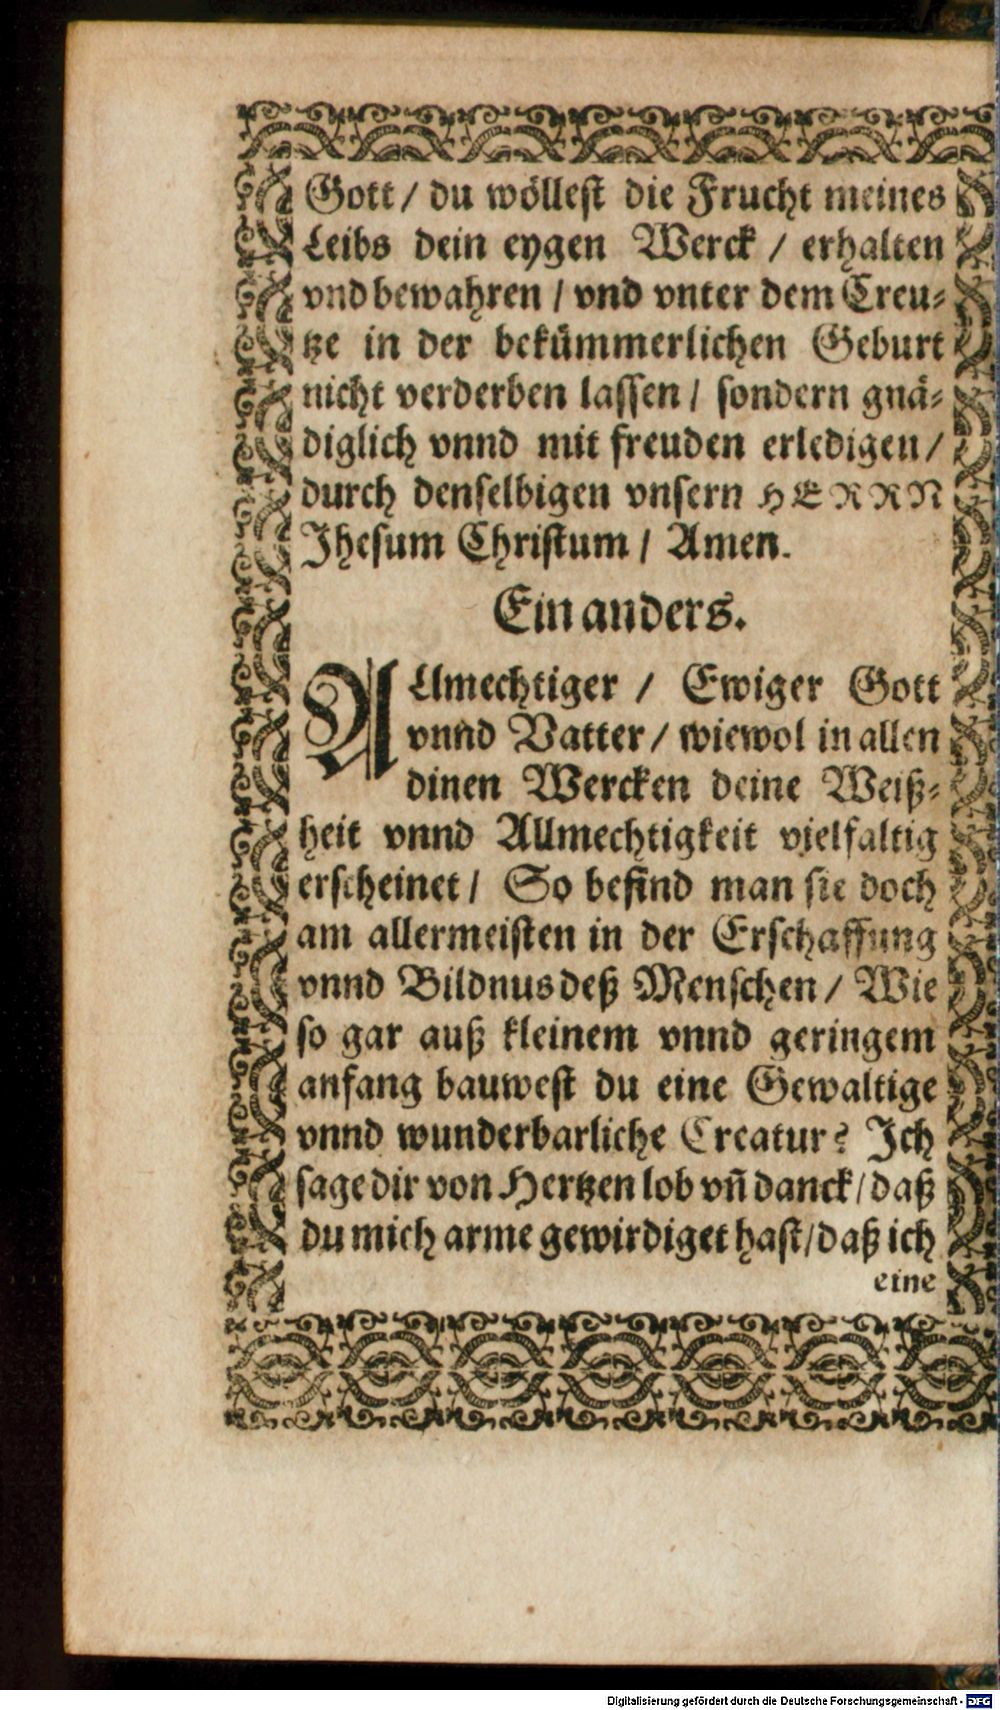 Gott / du wöllest die Frucht meines
Leibs dein eygen Werck / erhalten
vnd bewahren / vnd vnter dem Creu-
tze in der bekümmerlichen Geburt
nicht verderben lassen / sondern gnä-
diglich vnnd mit freuden erledigen /
durch denselbigen vnsern HERRN
Jhesum Christum / Amen.
Ein anders.
ALlmechtiger / Ewiger Gott
vnnd Vatter / wiewol in allen
dinen Wercken deine Weiß-
heit vnnd Allmechtigkeit vielfaltig
erscheinet / So befind man sie doch
am allermeisten in der Erschaffung
vnnd Bildnus deß Menschen / Wie
so gar auß kleinem vnnd geringem
anfang bauwest du eine Gewaltige
vnnd wunderbarliche Creatur? Ich
sage dir von Hertzen lob vñ danck / daß
du mich arme gewirdiget hast / daß ich
eine
Digitalisierung gefördert durch die Deutsche Forschungsgemeinschaft - DFG